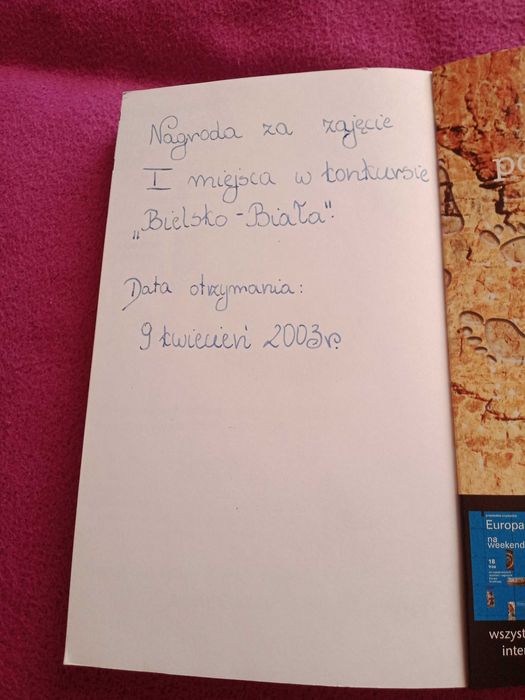 Nagroda za zajęcie
I miejsca w konkursie
„Bielsko-Biała".
Data otrzymania:
9 kwiecień 2003r.
po
Europa
na
weekend
18
wszyst
inter